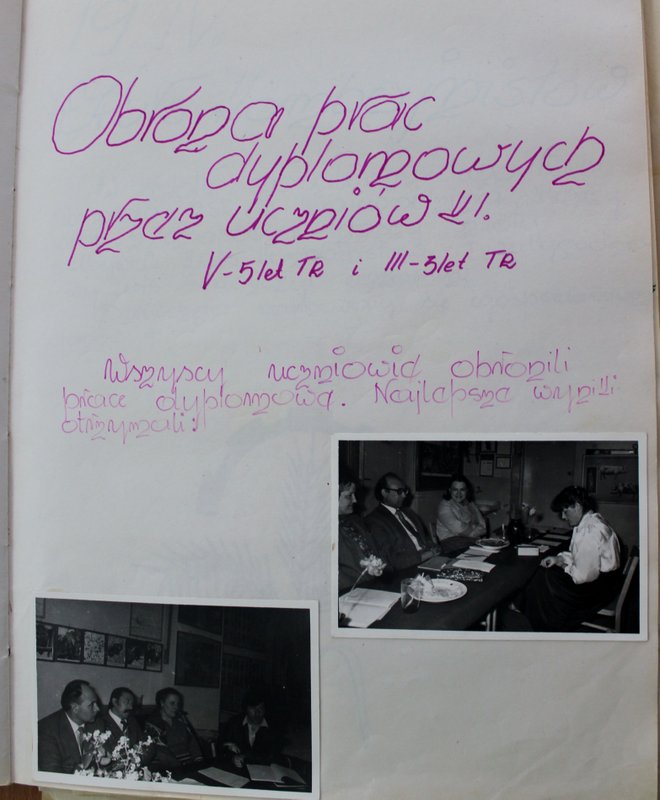 Obrona prac
dyplomowych
przez uczniów kl.
V-5let TR i III-3let TR
Wszyscy uczniowie obronili
prace dyplomowe. Najlepsze wyniki
otrzymali: